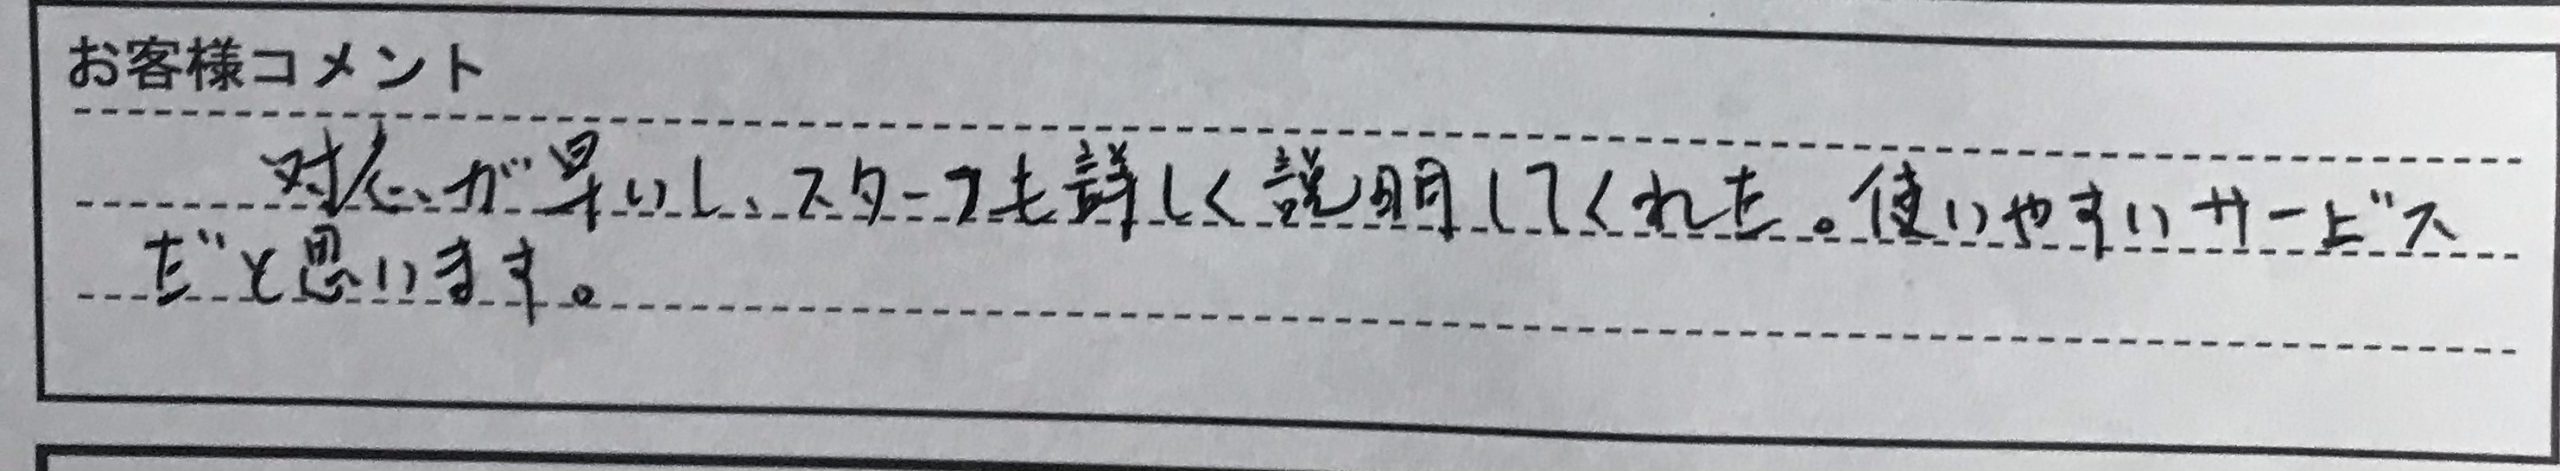 お客様コメント
対応が早いし、スターフも詳しく説明してくれた。使いやすいサービス
だと思います。